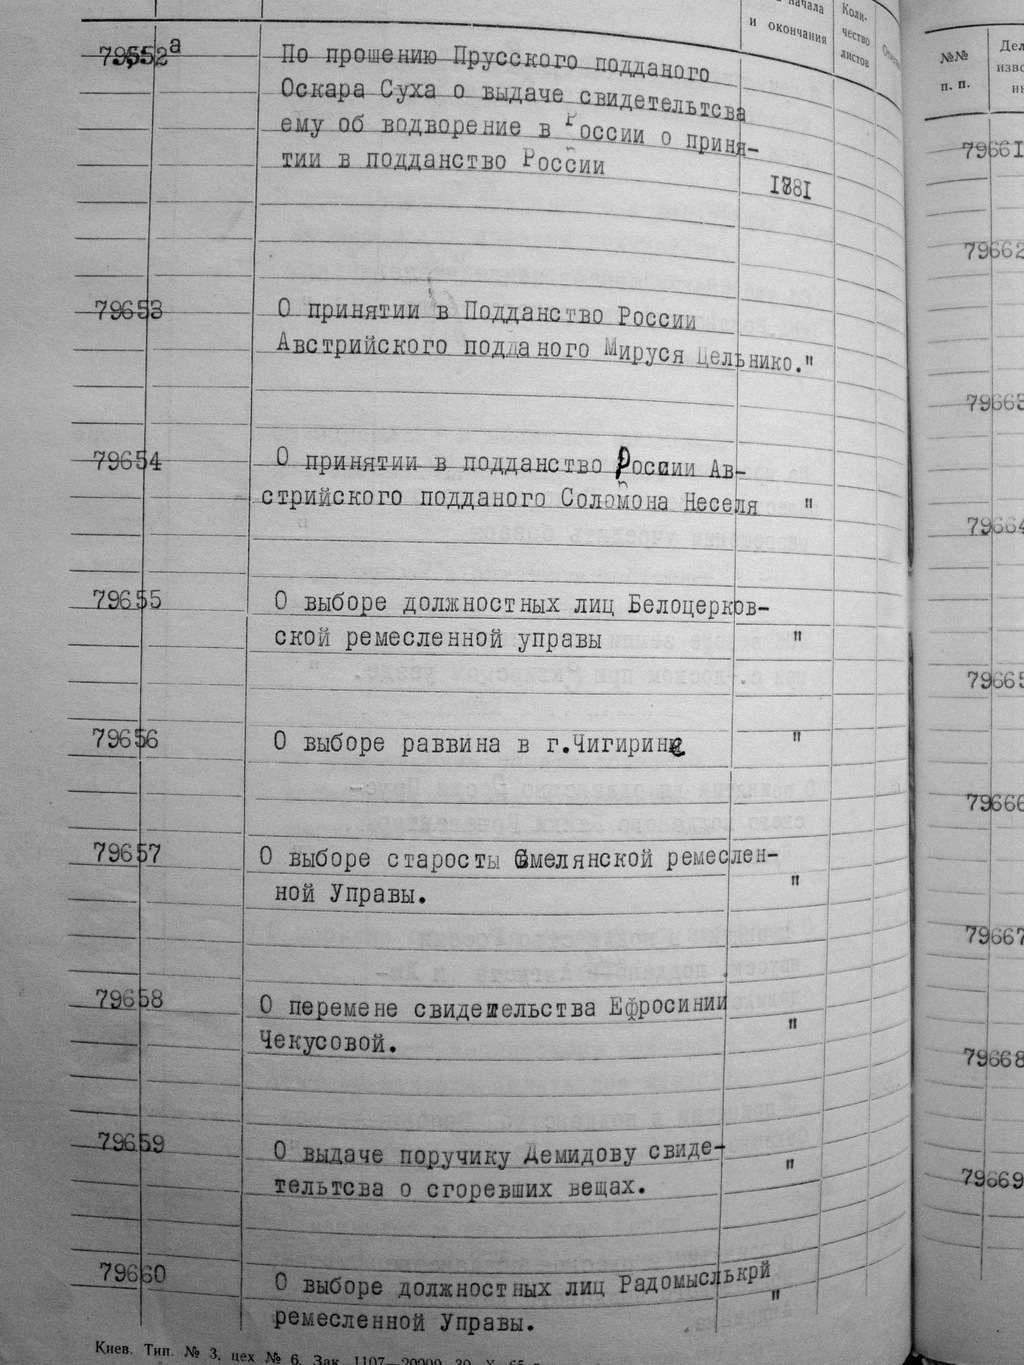 начала
и окончания
Коли-
чество
листов
79652а
По прошению Прусского подданого
Оскара Суха о выдаче свидетельтсва
ему об водворение в России о приня-
тии в подданство России
1881
79653
О принятии в Подданство России
Австрийского подданого Мируся Цельнико."
79654
О принятии в подданство России Ав-
стрийского подданого Соломона Неселя "
79655
О выборе должностных лиц Белоцерков-
ской ремесленной управы "
79656
О выборе раввина в г.Чигирине "
79657
О выборе старосты Смелянской ремеслен-
ной Управы. "
79658
О перемене свидетельства Ефросинии
Чекусовой. "
79659
О выдаче поручику Демидову свиде-
тельтсва о сгоревших вещах. "
79660
О выборе должностных лиц Радомыслькрй
ремесленной Управы. "
Киев. Тип. № 3, цех № 6. Зак. 1107—20000
№№
п. п.
79661
79662
79663
79664
79665
79666
79667
79668
79669